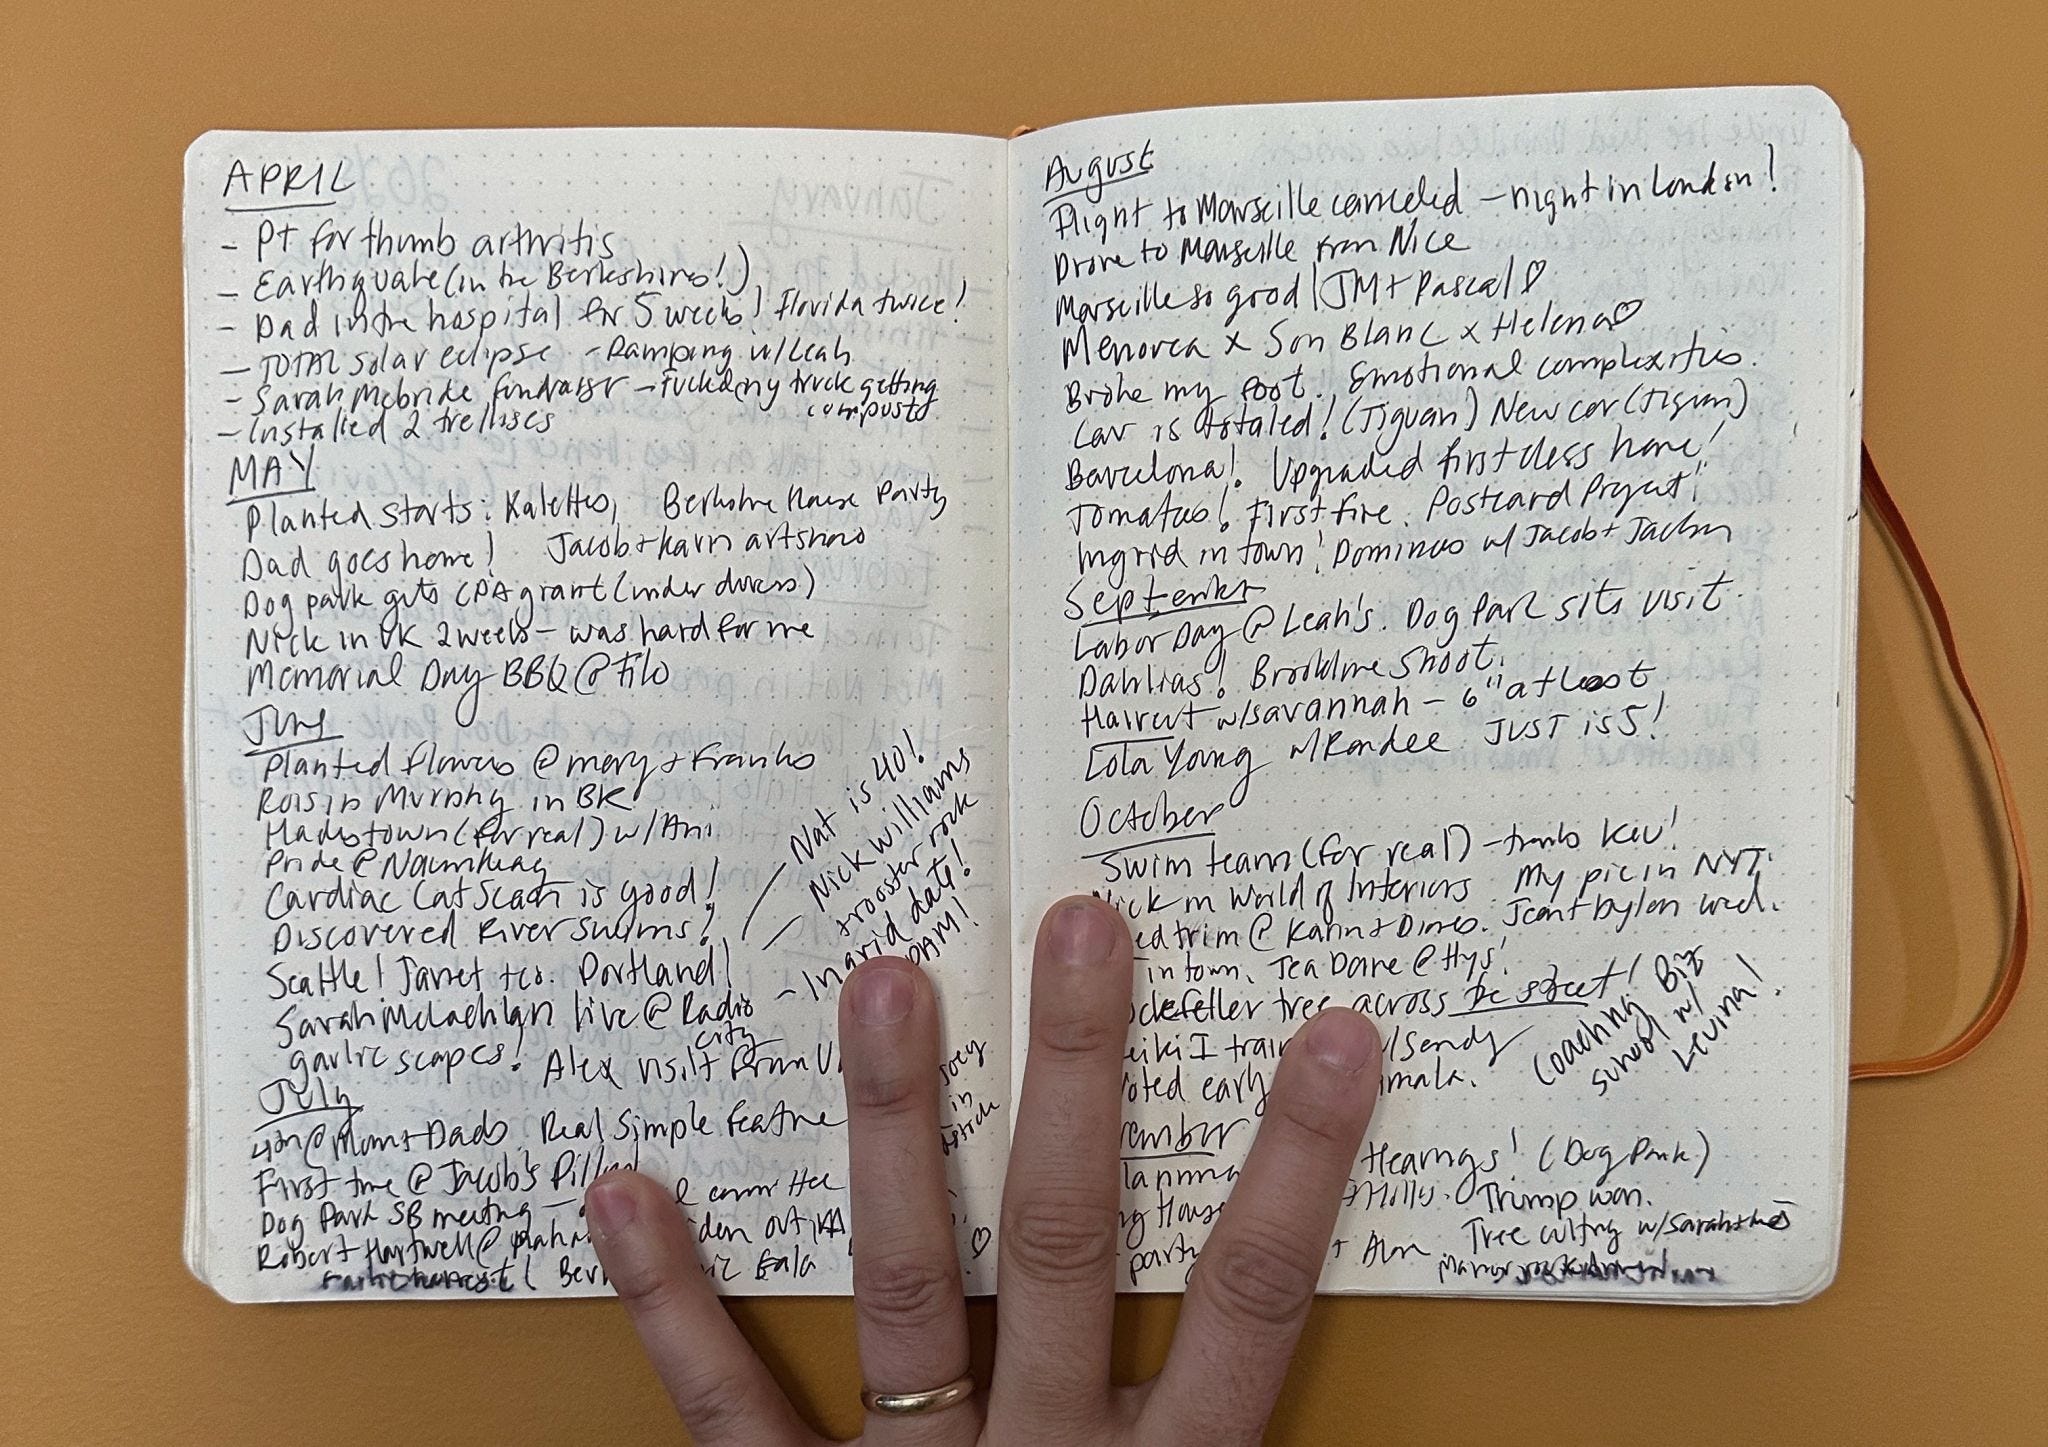 APRIL
- PT for thumb arthritis
- Earthquake (in the Berkshires!)
- Dad in the hospital for 5 weeks! Florida twice!
- TOTAL solar eclipse - Ramping w/Leah
- Sarah McBride fundraiser - Fucked my truck getting
compost
- Installed 2 trellises
MAY
Planted starts: Kalettes, Berkshire House Party
Dad goes home! Jacob + Karin art show
Dog park gets CPA grant (under duress)
Nick in UK 2 weeks - was hard for me
Memorial Day BBQ @ Filo
June
Planted flowers @ mary + Franks
Roisin Murphy in BK
Hadestown (for real) w/ Ani
Pride @ Naumkeag
Cardiac Cat Scan is good!
Discovered River Swims!
Seattle! Janet + co. Portland!
Sarah McLachlan live @ Radio
city
garlic scapes! Alex visit from
- Nat is 40!
- Nick Williams
+ rooster rock
- Ingrid date!
July
4th @ Mom + Dads Real Simple Feature
Joey
in
First time @ Jacob's
Dog Park SB meeting - committee
Robert Hartwell @ out KA
♡
harvest! Gala
August
Flight to Marseille canceled - night in London!
Drove to Marseille from Nice
Marseille so good | JM + Pascal ♡
Menorca x Son Blanc x Helena ♡
Broke my foot. Emotional complexities.
Car is totaled! (Tiguan) New car (Tiguan)
Barcelona! Upgraded first class home!
Tomatoes! First fire. Postcard Project!
Ingrid in town! Dominoes w/ Jacob +
September
Labor Day @ Leah's. Dog Park sits visit
Dahlias! Brookline Shoot.
Haircut w/savannah - 6" at least
Lola Young w/Randee JUST is 5!
October
Swim team (for real) - thanks Kev!
in World of Interiors My pic in NYT.
trim @ Karin + Dinos. Jean + Dylan wed.
in town. Tea Dance @ Hys!
tree across the street!
Coaching Biz
school w/
Levina!
I w/Sendy
early
Hearings! (Dog Park)
Trump won.
party + Alan Tree cutting w/Sarah +